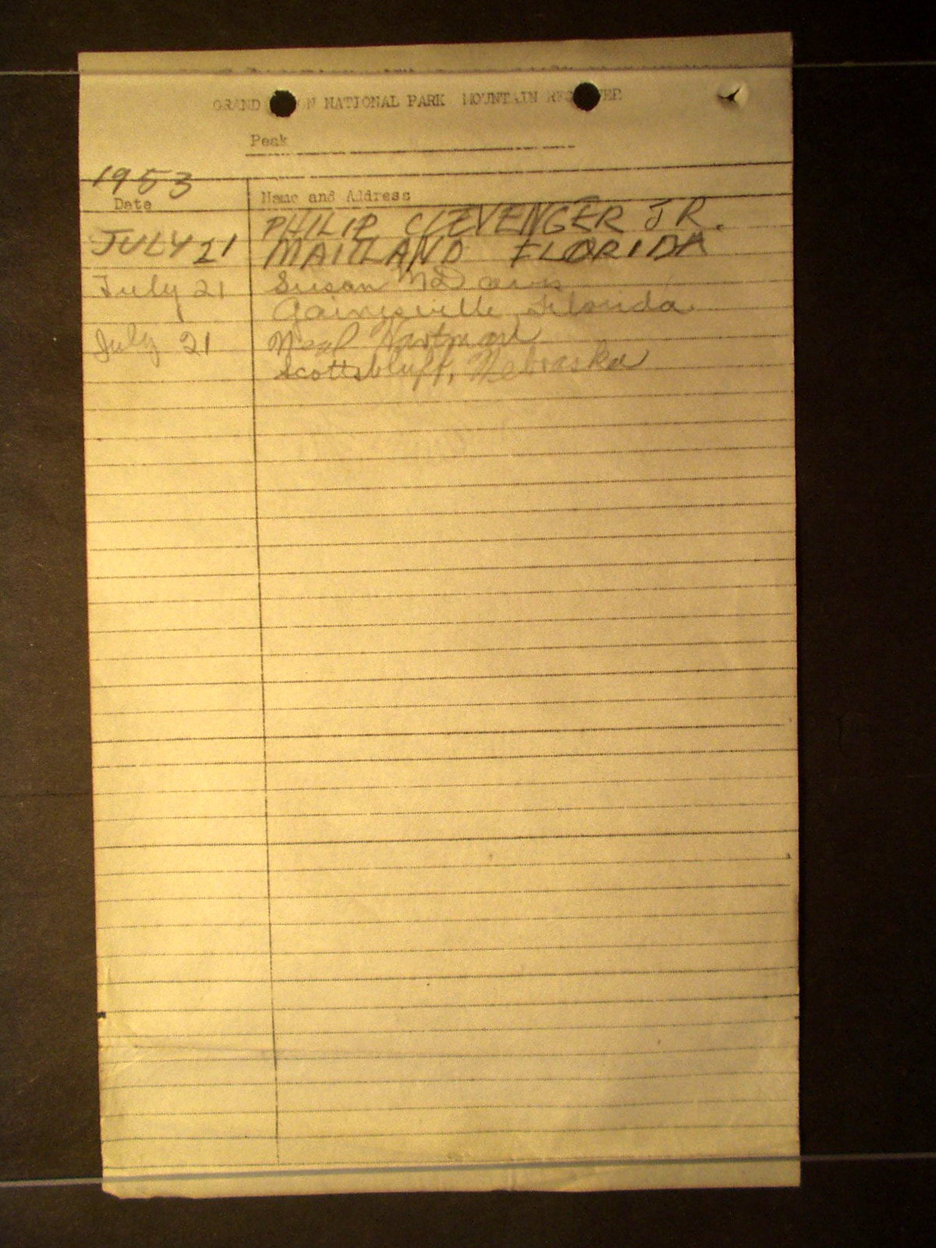 GRAND N NATIONAL PARK MOUNTAIN REGISTER
Peak
1953
Date Name and Address
PHILIP CLEVENGER JR.
JULY 21 MAITLAND FLORIDA
July 21 Susan Davis
Gainysville Florida
July 21 Neal Hartman
Scottsbluff, Nebraska